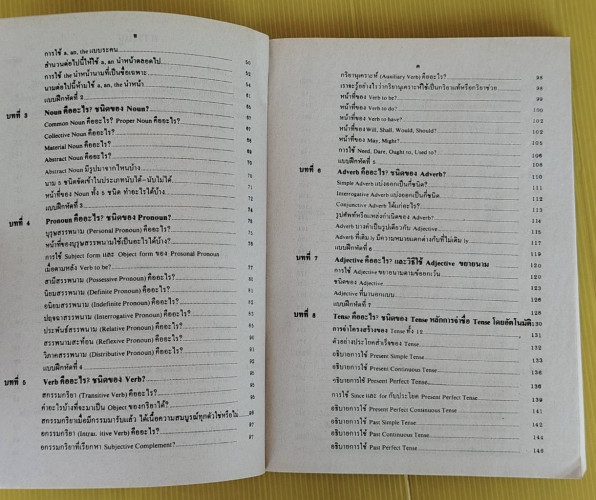 ข
การใช้ a, an, the แบบระคน
สำนวนต่อไปนี้ให้ใช้ a, an นำหน้าตลอดไป
การใช้ the นำหน้านามที่เป็นชื่อเฉพาะ
นามต่อไปนี้ห้ามใช้ a, an, the นำหน้า
แบบฝึกหัดที่ 2
บทที่ 3 Noun คืออะไร? ชนิดของ Noun?
Common Noun คืออะไร? Proper Noun คืออะไร?
Collective Noun คืออะไร?
Material Noun คืออะไร?
Abstract Noun คืออะไร?
Abstract Noun มีรูปมาจากไหนบ้าง
นาม 5 ชนิดจัดเข้าในประเภทนับได้-นับไม่ได้
หน้าที่ของ Noun ทั้ง 5 ชนิด ทำอะไรได้บ้าง
แบบฝึกหัดที่ 3
บทที่ 4 Pronoun คืออะไร? ชนิดของ Pronoun?
บุรุษสรรพนาม (Personal Pronoun) คืออะไร?
หน้าที่ของบุรุษสรรพนามใช้เป็นอะไรได้บ้าง?
การใช้ Subject form และ Object form ของ Prosonal Pronoun
เมื่อตามหลัง Verb to be?
สามีสรรพนาม (Possessive Pronoun) คืออะไร?
นิยมสรรพนาม (Definite Pronoun) คืออะไร?
อนิยมสรรพนาม (Indefinite Pronoun) คืออะไร?
ปฤจฉาสรรพนาม (Interrogative Pronoun) คืออะไร?
ประพันธ์สรรพนาม (Relative Pronoun) คืออะไร?
สรรพนามสะท้อน (Reflexive Pronoun) คืออะไร?
วิภาคสรรพนาม (Distributive Pronoun) คืออะไร?
แบบฝึกหัดที่ 4
บทที่ 5 Verb คืออะไร? ชนิดของ Verb?
สกรรมกริยา (Transitive Verb) คืออะไร?
คำอะไรบ้างที่จะมาเป็น Object ของกริยาได้?
สกรรมกริยาเมื่อมีกรรมมารับแล้ว ได้เนื้อความสมบูรณ์ทุกตัวใช่หรือไม่ 96
อกรรมกริยา (Intransitive Verb) คืออะไร? 97
อกรรมกริยาที่เรียกหา Subjective Complement? 97
ค
กริยานุเคราะห์ (Auxiliary Verb) คืออะไร? 98
เราจะรู้อย่างไรว่ากริยานุเคราะห์ใช้เป็นกริยาแท้หรือกริยาช่วย 99
หน้าที่ของ Verb to be? 99
หน้าที่ของ Verb to do? 100
หน้าที่ของ Verb to have? 101
หน้าที่ของ Will, Shall, Would, Should? 102
หน้าที่ของ May, Might?
การใช้ Need, Dare, Ought to, Used to? 106
แบบฝึกหัดที่ 5 108
บทที่ 6 Adverb คืออะไร? ชนิดของ Adverb? 110
Simple Adverb แบ่งออกเป็นกี่ชนิด? 111
Interrogative Adverb แบ่งออกเป็นกี่ชนิด? 112
Conjunctive Adverb ได้แก่อะไร? 114
รูปศัพท์หรือแหล่งกำเนิดของ Adverb? 114
Adverb บางคำเป็นรูปเดียวกับ Adjective 115
Adverb ที่เติม ly มีความหมายแตกต่างกับที่ไม่เติม ly 117
แบบฝึกหัดที่ 6
บทที่ 7 Adjective คืออะไร? และวิธีใช้ Adjective ขยายนาม 120
การใช้ Adjective ขยายนามตามข้อยกเว้น
ชนิดของ Adjective
Adjective ที่มานอกแบบ 126
แบบฝึกหัดที่ 7 128
บทที่ 8 Tense คืออะไร? ชนิดของ Tense หลักการจำชื่อ Tense โดยอัตโนมัติ 130
การจำโครงสร้างของ Tense ทั้ง 12 131
ตัวอย่างประโยคสำเร็จของ Tense 132
อธิบายการใช้ Present Simple Tense 133
อธิบายการใช้ Present Continuous Tense 136
อธิบายการใช้ Present Perfect Tense 138
การใช้ Since และ for กับประโยค Present Perfect Tense 139
อธิบายการใช้ Present Perfect Continuous Tense 141
อธิบายการใช้ Past Simple Tense 142
อธิบายการใช้ Past Continuous Tense 144
อธิบายการใช้ Past Perfect Tense 146